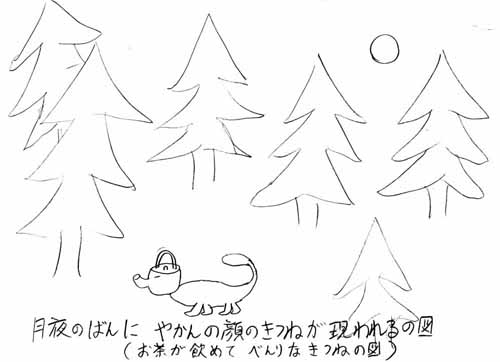 月夜のばんに やかんの顔のきつねが 現われるの図
(お茶が飲めて べんりな きつねの図)